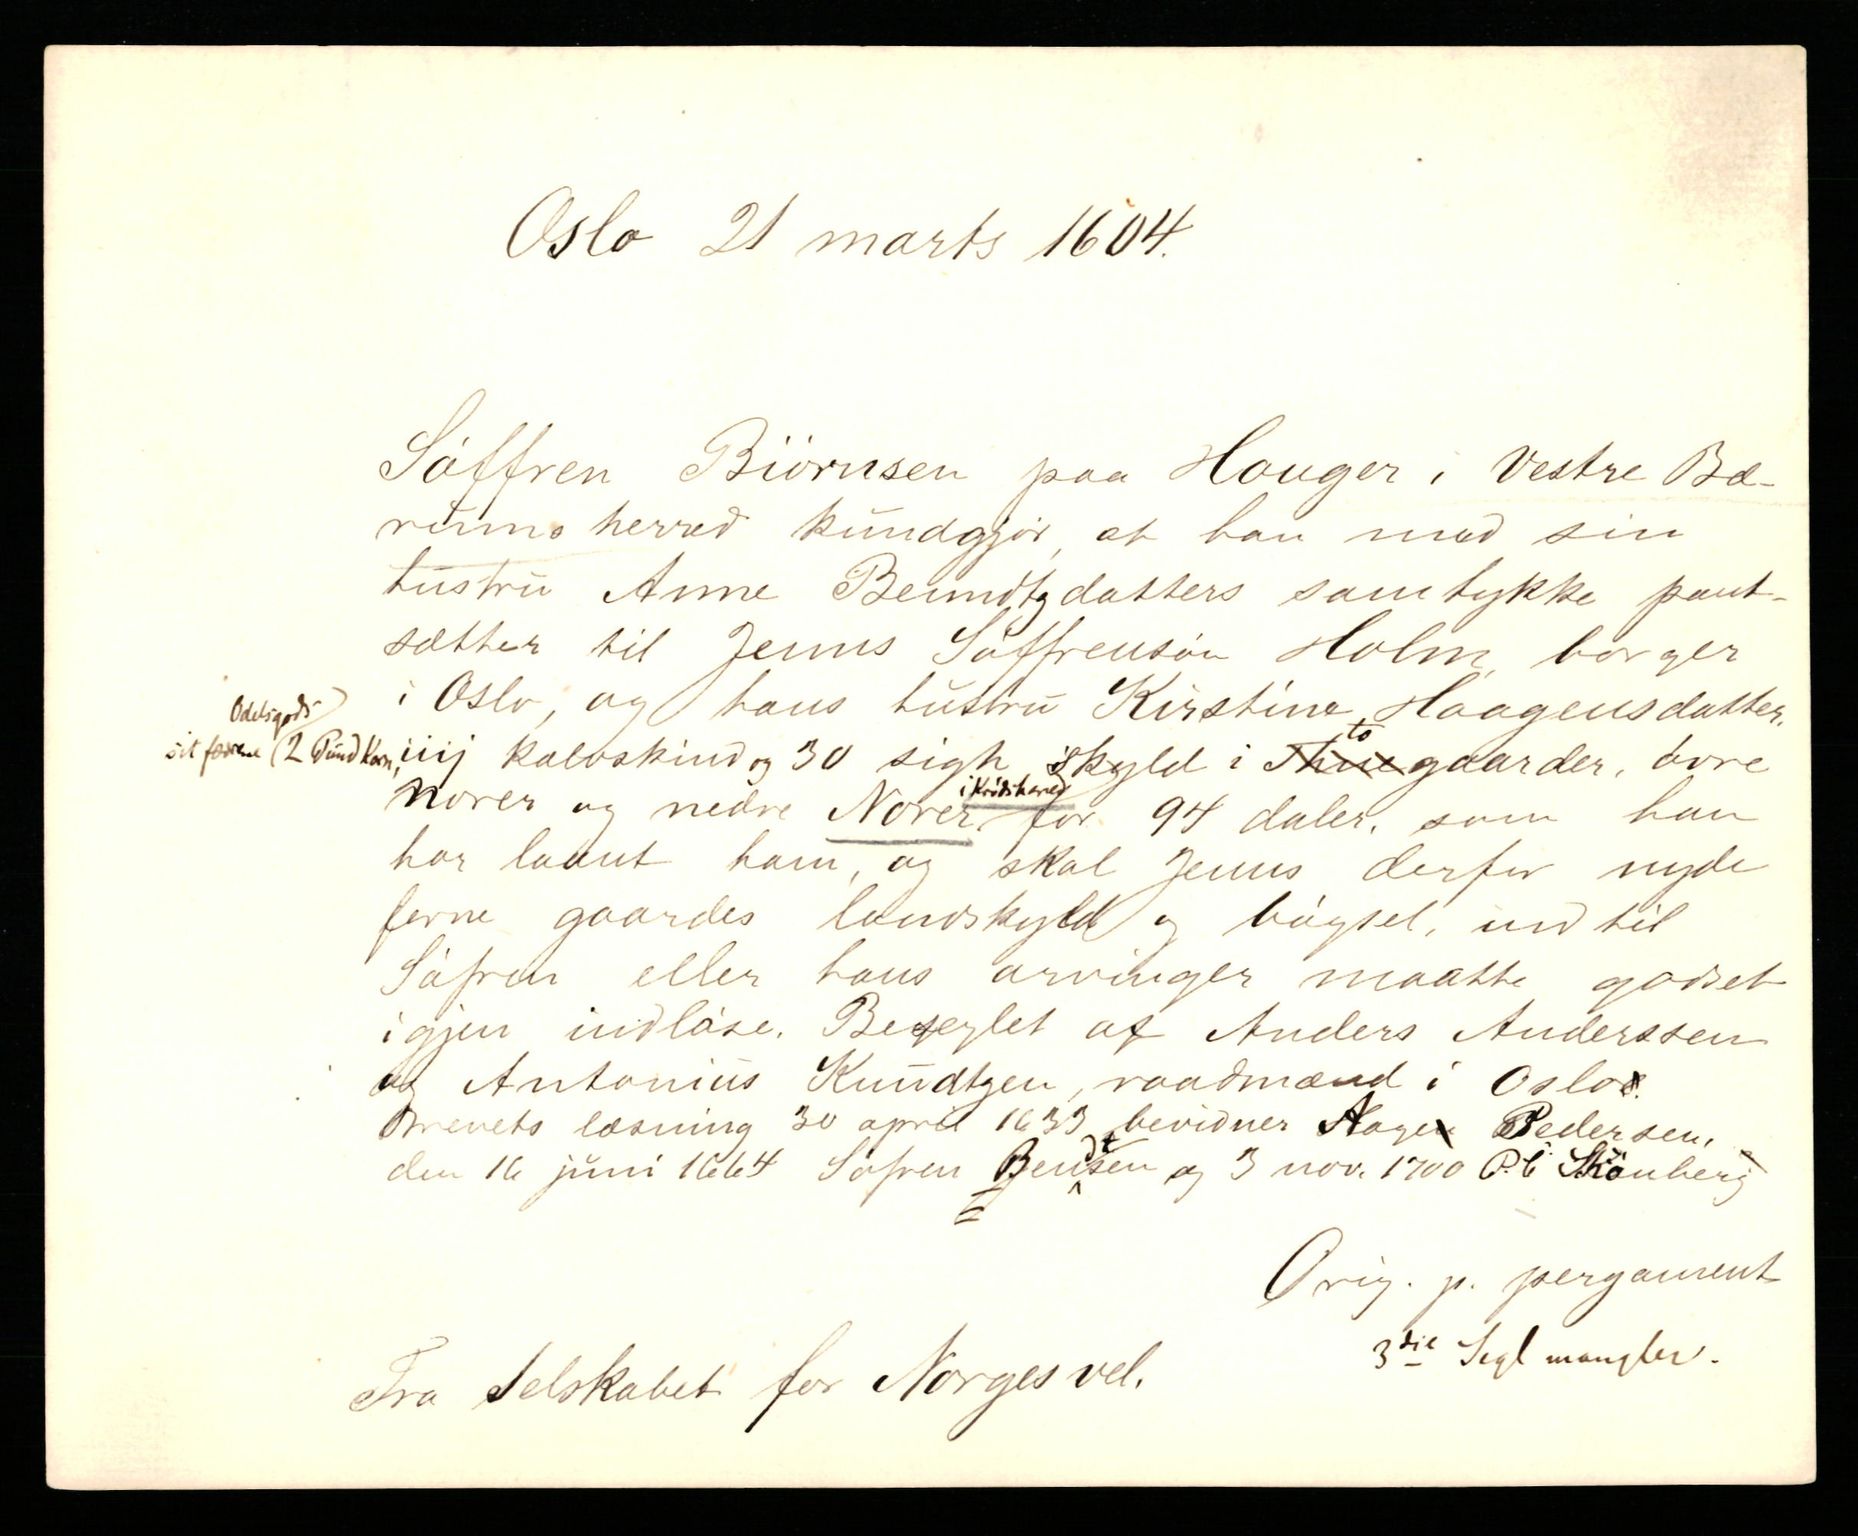 Oslo 21 marts 1604.
Söffren Biörnsen paa Houger i Vestre Bæ-
rums herred kundgjör, at han med sin
hustru Anne Benndtzdatters samtykke pant-
sætter til Jenns Söffrensön Holm, borger
i Oslo, og hans hustru Kirstine Haagensdatter,
Odelsgods
sit fædrene (2 Pund Korn, iiij kalvskind og 30 sigh skyld i to gaarder, övre
Norer og nedre Norer i Krödsherred for 94 daler, som han
har laant ham, og skal Jenns derfor nyde
ferne gaardes landskyld og bögsel, indtil
Söfren eller hans arvinger maatte godset
igjen indlöse. Beseglet af Anders Anderssen
og Antonius Knudtzen, raadmænd i Oslo.
Brevets læsning 30 april 1633 bevidner Hage Pedersen,
den 16 juni 1664 Söfren Bendtsen og 3 nov. 1700 P. C. Skönberg
Orig. p. pergament
3die Segl mangler.
Fra Selskabet for Norges vel.